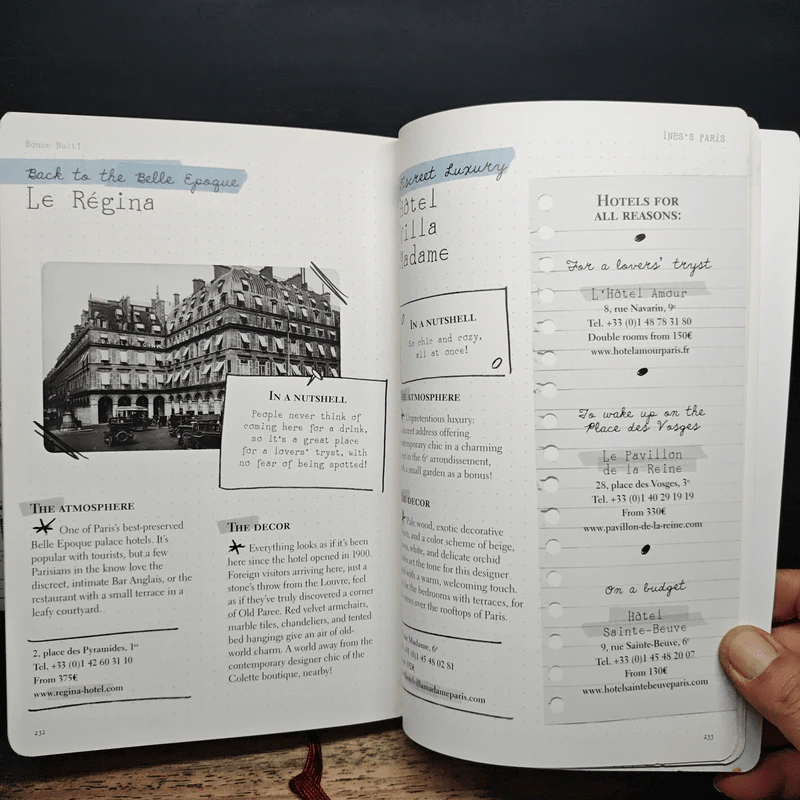 Bonne Nuit!
Back to the Belle Epoque
Le Régina
IN A NUTSHELL
People never think of
coming here for a drink,
so it's a great place
for a lovers' tryst, with
no fear of being spotted!
THE ATMOSPHERE
One of Paris's best-preserved
Belle Epoque palace hotels. It's
popular with tourists, but a few
Parisians in the know love the
discreet, intimate Bar Anglais, or the
restaurant with a small terrace in a
leafy courtyard.
2, place des Pyramides, 1er
Tel. +33 (0)1 42 60 31 10
From 375€
www.regina-hotel.com
THE DECOR
Everything looks as if it's been
here since the hotel opened in 1900.
Foreign visitors arriving here, just a
stone's throw from the Louvre, feel
as if they've truly discovered a corner
of Old Paree. Red velvet armchairs,
marble tiles, chandeliers, and tented
bed hangings give an air of old-
world charm. A world away from the
contemporary designer chic of the
Colette boutique, nearby!
232
INES'S PARIS
Luxury
Madame
IN A NUTSHELL
So chic and cozy,
all at once!
ATMOSPHERE
Unpretentious luxury:
address offering
chic in a charming
in the 6e arrondissement,
a small garden as a bonus!
DECOR
Pale wood, exotic decorative
and a color scheme of beige,
white, and delicate orchid
set the tone for this designer
with a warm, welcoming touch.
the bedrooms with terraces, for
over the rooftops of Paris.
Madame, 6e
(0)1 45 48 02 81
HOTELS FOR
ALL REASONS:
For a lovers' tryst
L'Hôtel Amour
8, rue Navarin, 9e
Tel. +33 (0)1 48 78 31 80
Double rooms from 150€
www.hotelamourparis.fr
To wake up on the
Place des Vosges
Le Pavillon
de la Reine
28, place des Vosges, 3e
Tel. +33 (0)1 40 29 19 19
From 330€
www.pavillon-de-la-reine.com
On a budget
Hôtel
Sainte-Beuve
9, rue Sainte-Beuve, 6e
Tel. +33 (0)1 45 48 20 07
From 130€
www.hotelsaintebeuveparis.com
233